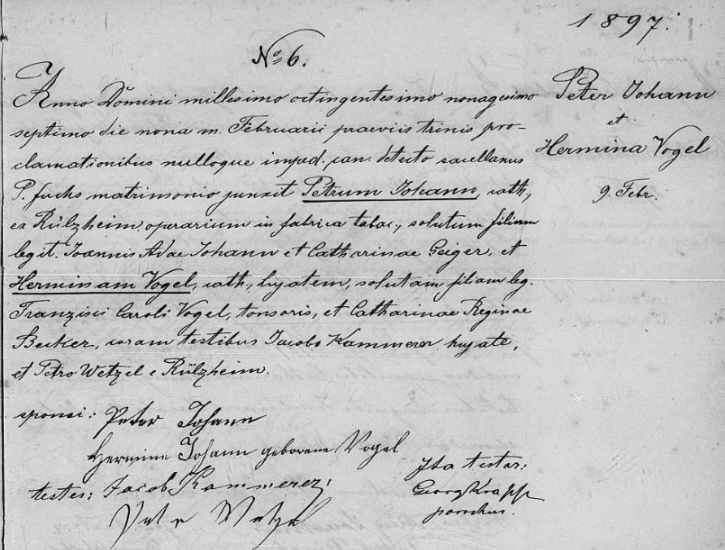 1897.
No 6.
Anno Domini millesimo octingentesimo nonagesimo
septimo die nona m. Februarii praeviis trinis pro-
clamationibus nulloque imped. can. detecto sacellanus
P. Fuchs matrimonio junxit Petrum Johann, cath.,
ex Rülzheim, operarium in fabrica tabac., solutum filium
legit. Joannis Adae Johann et Catharinae Geiger, et
Herminam Vogel, cath., hujatem, solutam filiam leg.
Franzisci Caroli Vogel, tonsoris, et Catharinae Reginae
Becker, coram testibus Jacobo Kammerer hujate,
et Petro Wetzel e Rülzheim.
sponsi: Peter Johann
Hermine Johann geborene Vogel
testes: Jacob Kammerer;
Peter Wetzel
Ita testor:
Georg Krapp
parochus.
Peter Johann
et
Hermina Vogel
9. Febr.